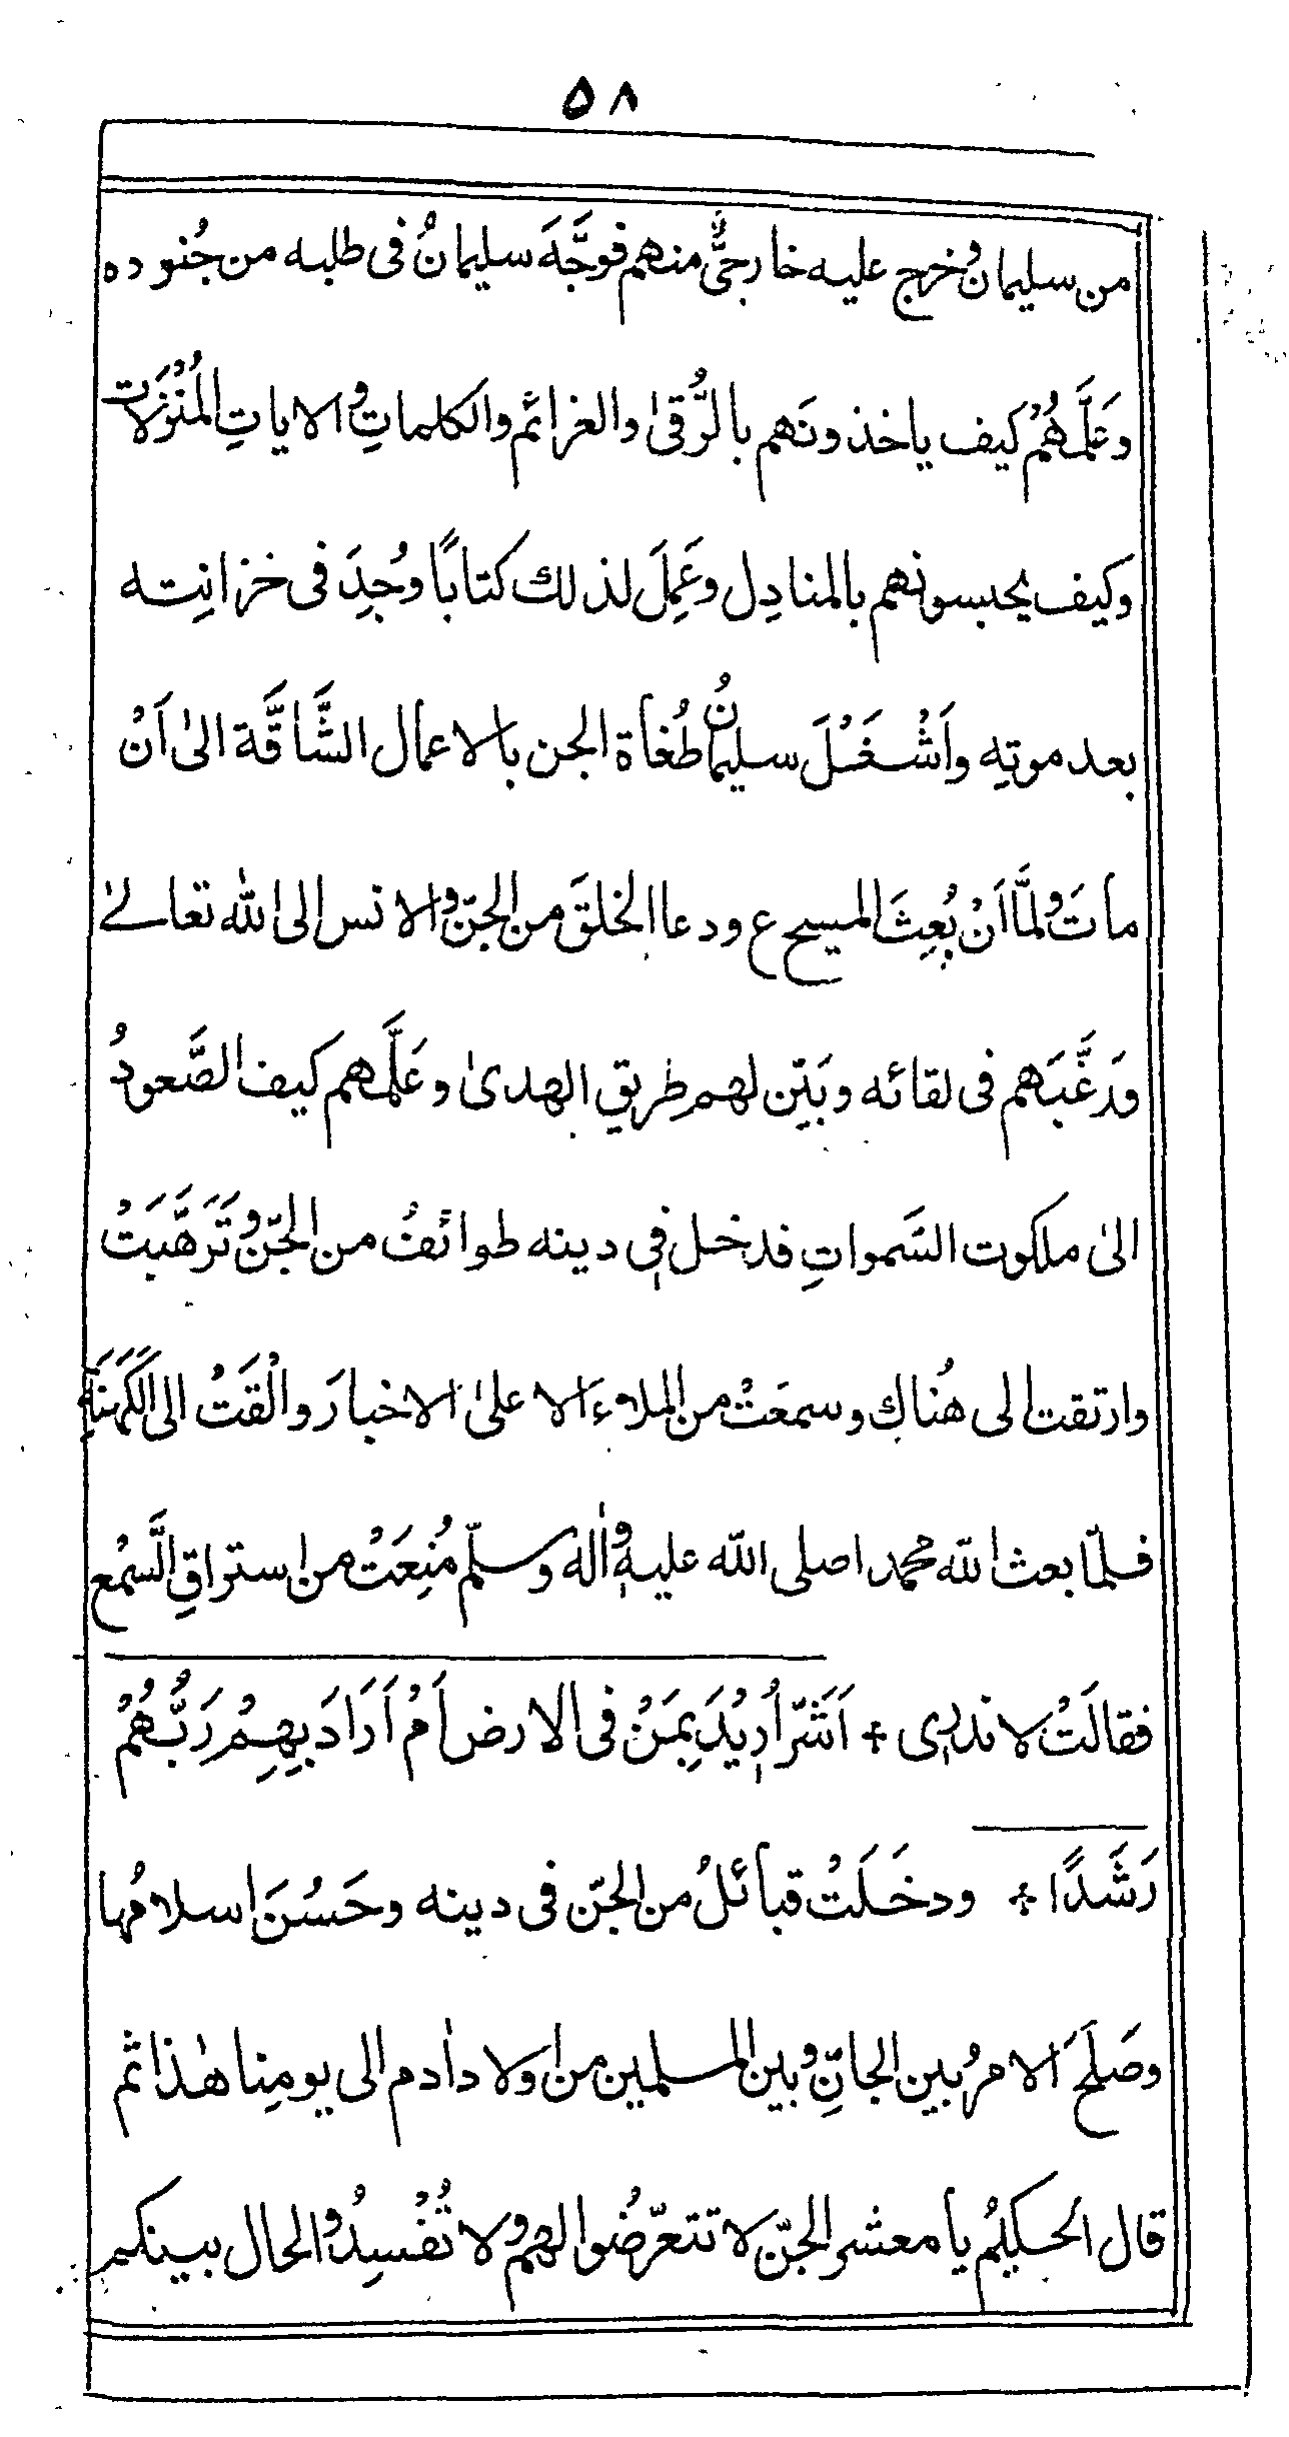 ٥٨
من سليمان وخرج عليه خارجيٌّ منهم فوجَّهَ سليمانُ فى طلبه من جُنوده
وعَلَّمهُمْ كيف ياخذونَهم بالرُّقىٰ والعزائم والكلماتِ والاياتِ المُنْزَلات
وكيف يحبسونهم بالمنادِل وعَمِلَ لذلك كتابًا وُجِدَ فى خزانِته
بعد موتِه واَشْغَلَ سليمانُ طُغاةَ الجن بالاعمال الشَّاقَّة الىٰ اَنْ
ماتَ ولمَّا اَنْ بُعِثَ المسيح ع ودعا الخلقَ من الجنّ والانس الى الله تعالےٰ
ورَغَّبَهم فى لقائه وبَيّن لهم طريق الهدىٰ وعَلَّمهم كيف الصَّعودُ
الىٰ ملكوت السَّمواتِ فدخل فى دينه طوائفُ من الجنّ وتَرَهَّبَتْ
وارتقت الى هُناك وسمعَتْ من الملاءِ الاعلىٰ الاخبارَ والْقَتْ الى الكَهَنَةِ
فلمّا بعث الله محمدا صلى الله عليه واٰله وسلّم مُنِعَتْ من استراقِ السَّمْع
فقالَتْ لا ندرى + اَشَرّ اُرِيْدَ بِمَنْ فى الارض اَمْ اَرَادَ بِهِمْ رَبُّهُمْ
رَشَدًا + ودخَلَتْ قبائلُ من الجنّ فى دينه وحَسُنَ اسلامُها
وصَلحَ الامرُ بين الجانّ وبين المسلمين من اولاد اٰدم الى يومِنا هٰذا ثم
قال الحكيمُ يا معشر الجنّ لا تتعرّضُوا لهم ولا تُفْسِدُوا الحال بينكم